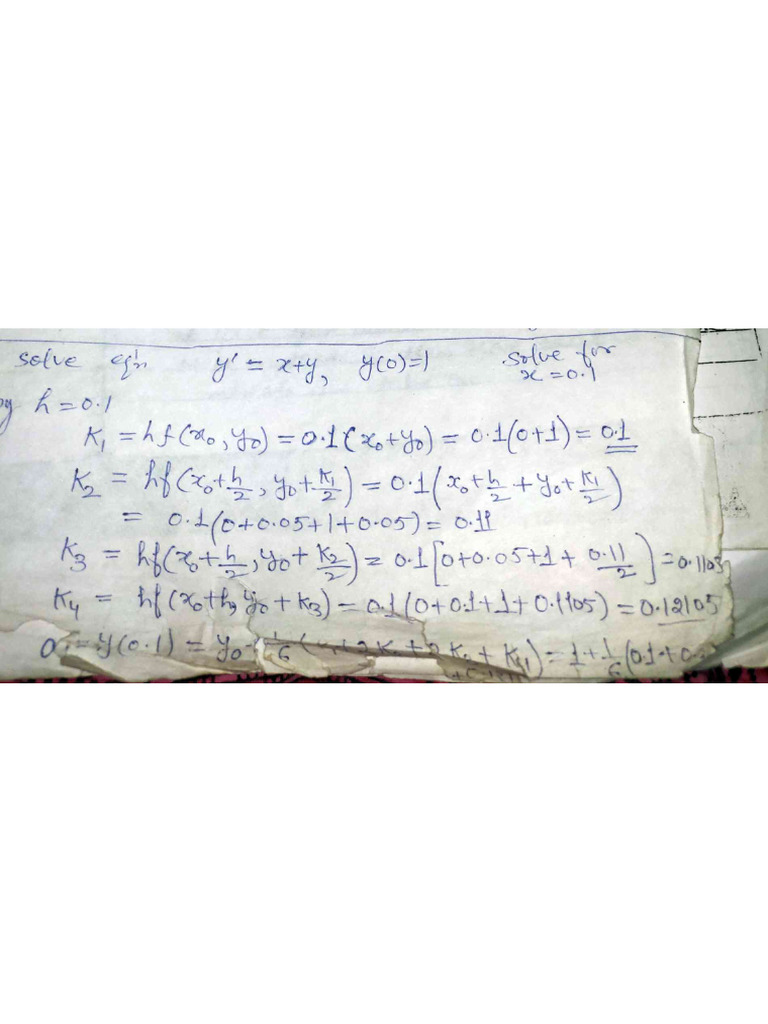 solve eqn y' = x+y, y(0)=1 solve for
x = 0.1
h = 0.1
K₁ = hf(x₀, y₀) = 0.1(x₀+y₀) = 0.1(0+1) = 0.1
K₂ = hf(x₀+h/2, y₀+K₁/2) = 0.1(x₀+h/2+y₀+K₁/2)
= 0.1(0+0.05+1+0.05) = 0.11
K₃ = hf(x₀+h/2, y₀+K₂/2) = 0.1[0+0.05+1+0.11/2] = 0.1105
K₄ = hf(x₀+h, y₀+K₃) = 0.1(0+0.1+1+0.1105) = 0.12105
= y(0.1) = y₀ 1/6 ( + K₄) = 1+1/6(0.1+0.